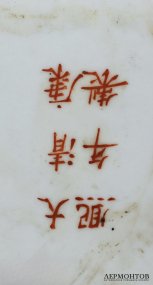 大清康
熙年製
ЛЕРМОНТОВ